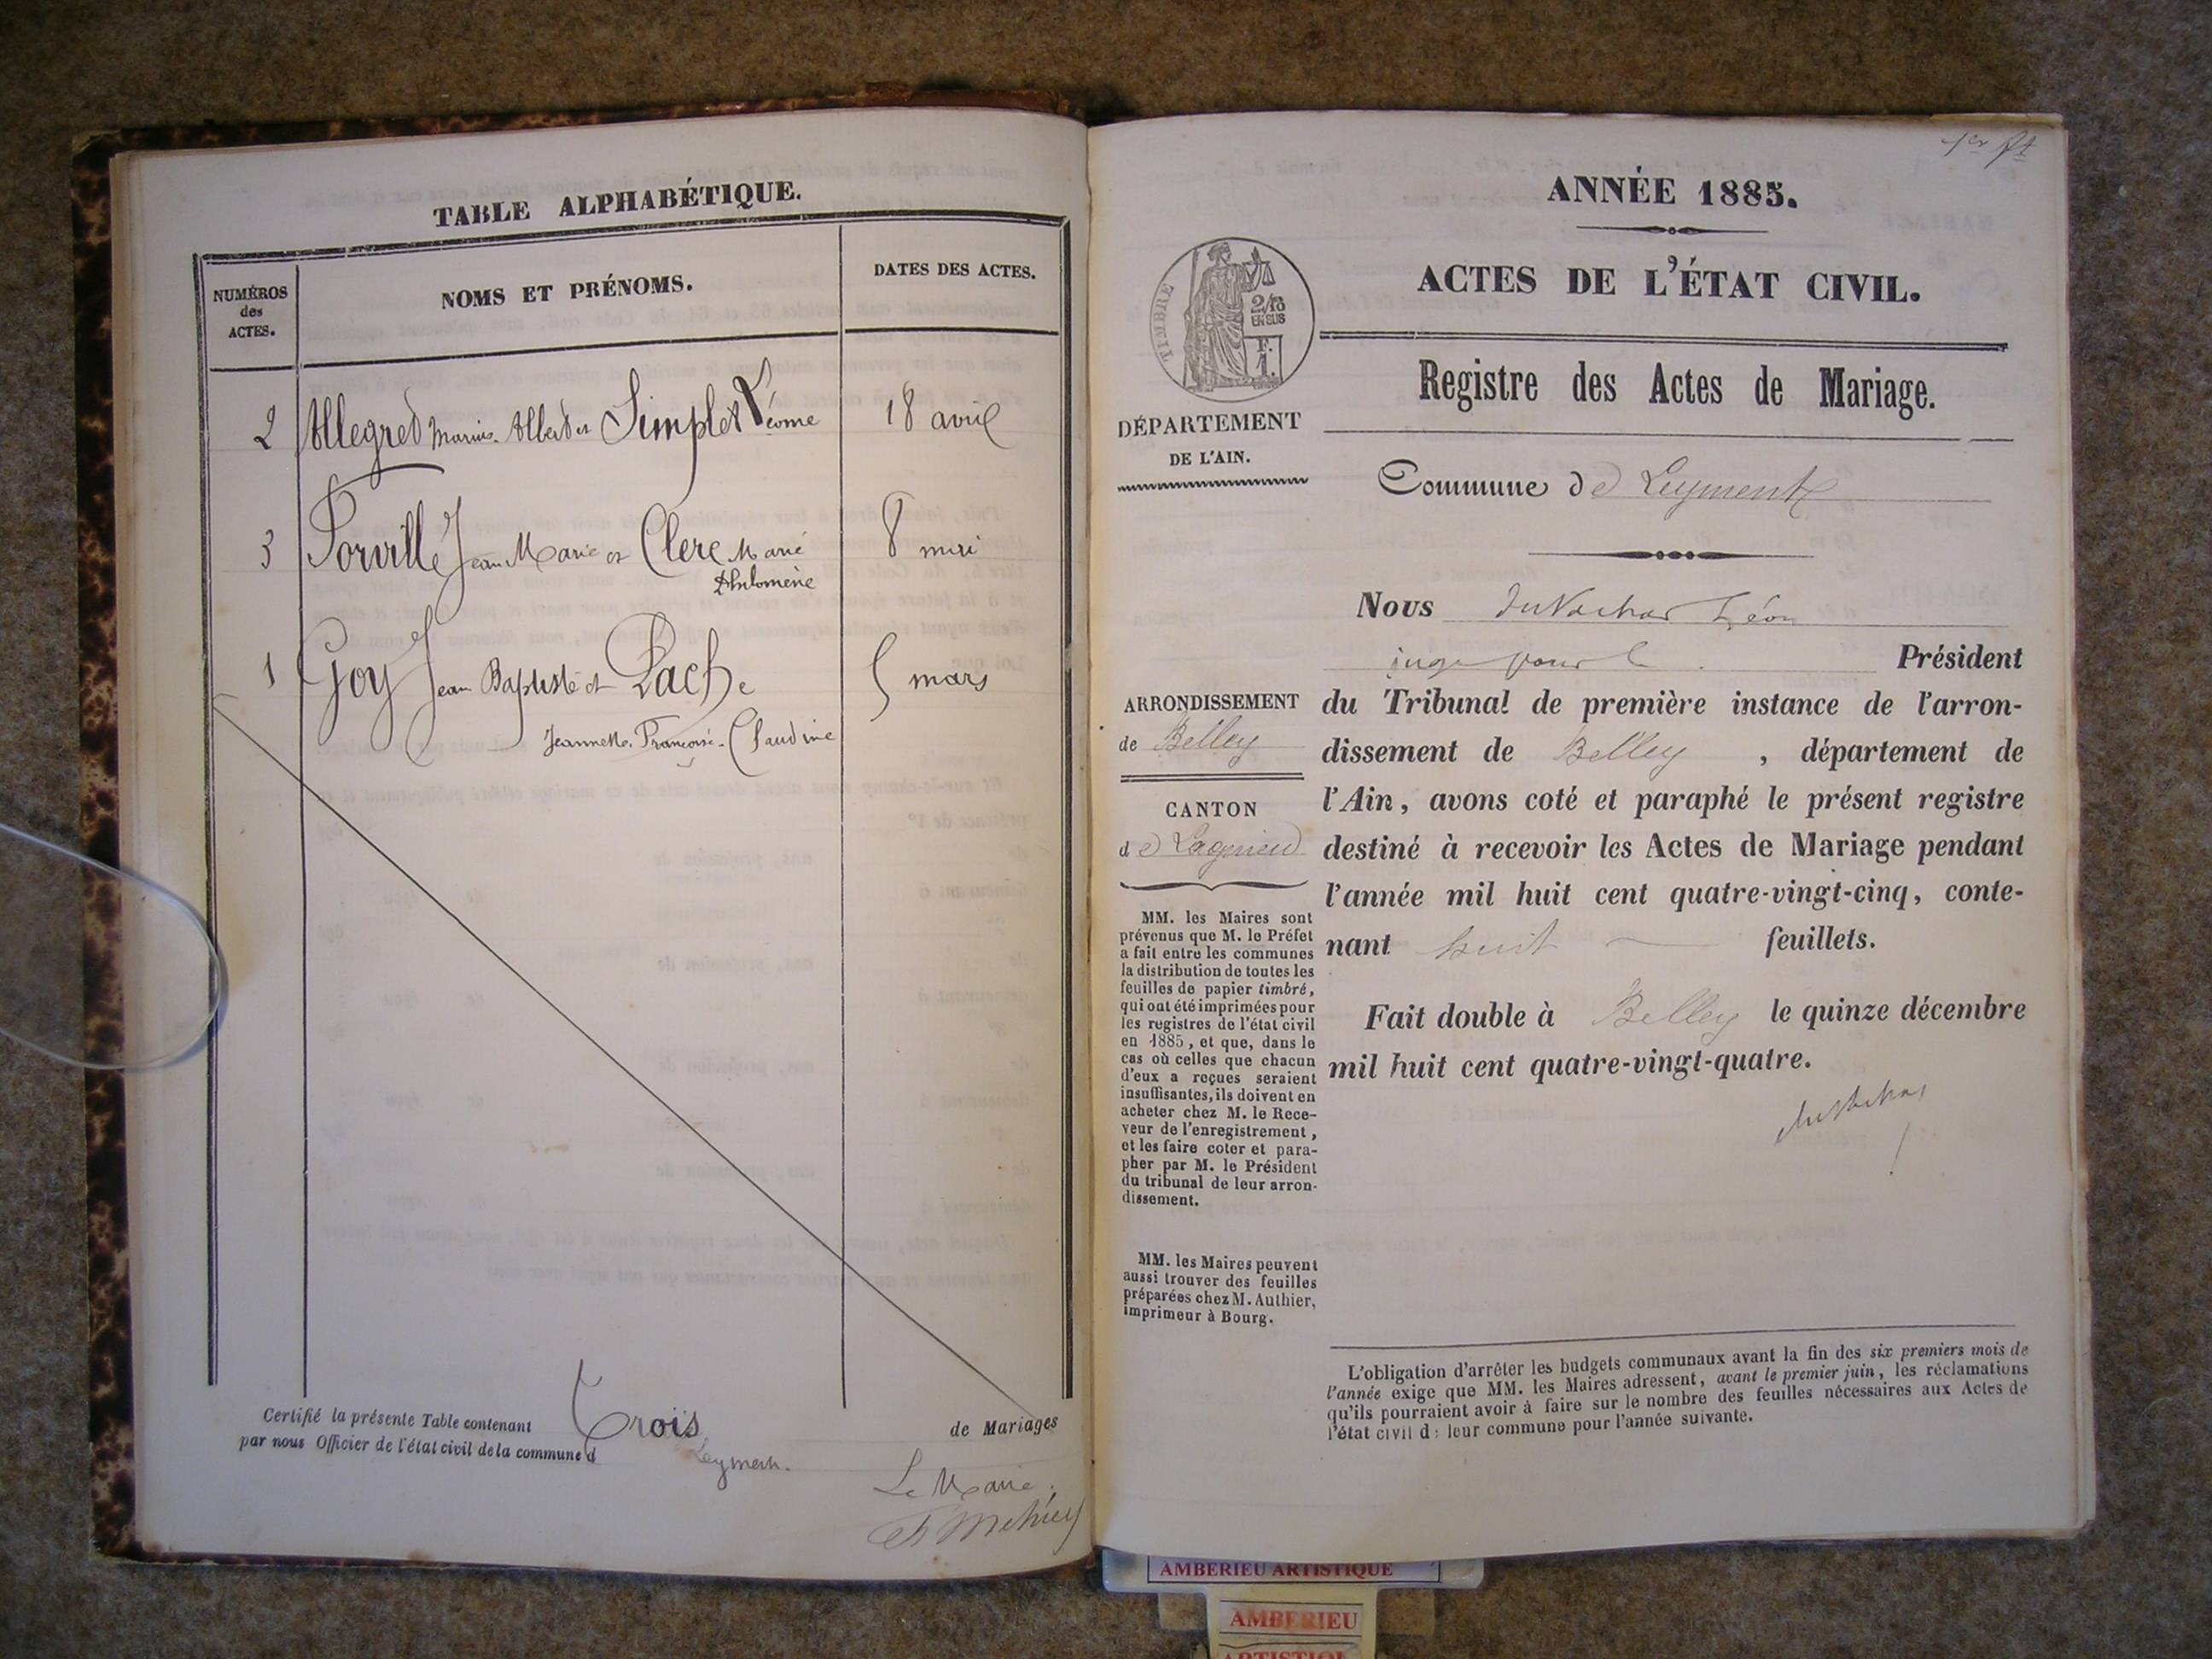 TABLE ALPHABÉTIQUE.
NUMÉROS
des
ACTES.
NOMS ET PRÉNOMS.
DATES DES ACTES.
2 Allegret Marius Albert et Simplet 18 avril
3 Jean Marie et Clerc Marie 8 mai
Philomène
1 Goy Jean Baptiste et Pache 5 mars
Jeannette Françoise Claudine
Certifié la présente Table contenant Trois de Mariages
par nous Officier de l'état civil de la commune d Leyment.
Le Maire
1er ft
ANNÉE 1885.
ACTES DE L'ÉTAT CIVIL.
TIMBRE
2/10
EN SUS
F.
1.
Registre des Actes de Mariage.
DÉPARTEMENT
DE L'AIN.
Commune de Leyment
Nous Léon
juge pour le Président
du Tribunal de première instance de l'arron-
dissement de Belley, département de
l'Ain, avons coté et paraphé le présent registre
destiné à recevoir les Actes de Mariage pendant
l'année mil huit cent quatre-vingt-cinq, conte-
nant huit feuillets.
Fait double à Belley le quinze décembre
mil huit cent quatre-vingt-quatre.
ARRONDISSEMENT
de Belley
CANTON
de Lagnieu
MM. les Maires sont
prévenus que M. le Préfet
a fait entre les communes
la distribution de toutes les
feuilles de papier timbré,
qui ont été imprimées pour
les registres de l'état civil
en 1885, et que, dans le
cas où celles que chacun
d'eux a reçues seraient
insuffisantes, ils doivent en
acheter chez M. le Rece-
veur de l'enregistrement,
et les faire coter et para-
pher par M. le Président
du tribunal de leur arron-
dissement.
MM. les Maires peuvent
aussi trouver des feuilles
préparées chez M. Authier,
imprimeur à Bourg.
L'obligation d'arrêter les budgets communaux avant la fin des six premiers mois de
l'année exige que MM. les Maires adressent, avant le premier juin, les réclamations
qu'ils pourraient avoir à faire sur le nombre des feuilles nécessaires aux Actes de
l'état civil de leur commune pour l'année suivante.
AMBERIEU ARTISTIQUE
AMBERIEU
ARTISTIQUE